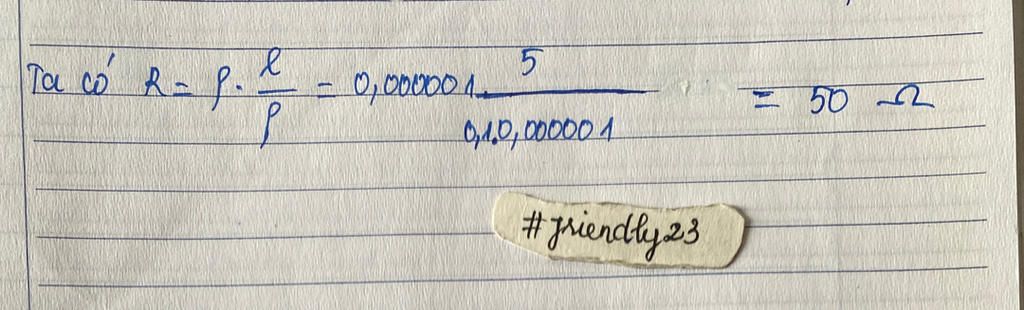 Ta có R = ρ . l / ρ = 0,000001. 5 / 0,1.0,000001 = 50 Ω
#friendly23